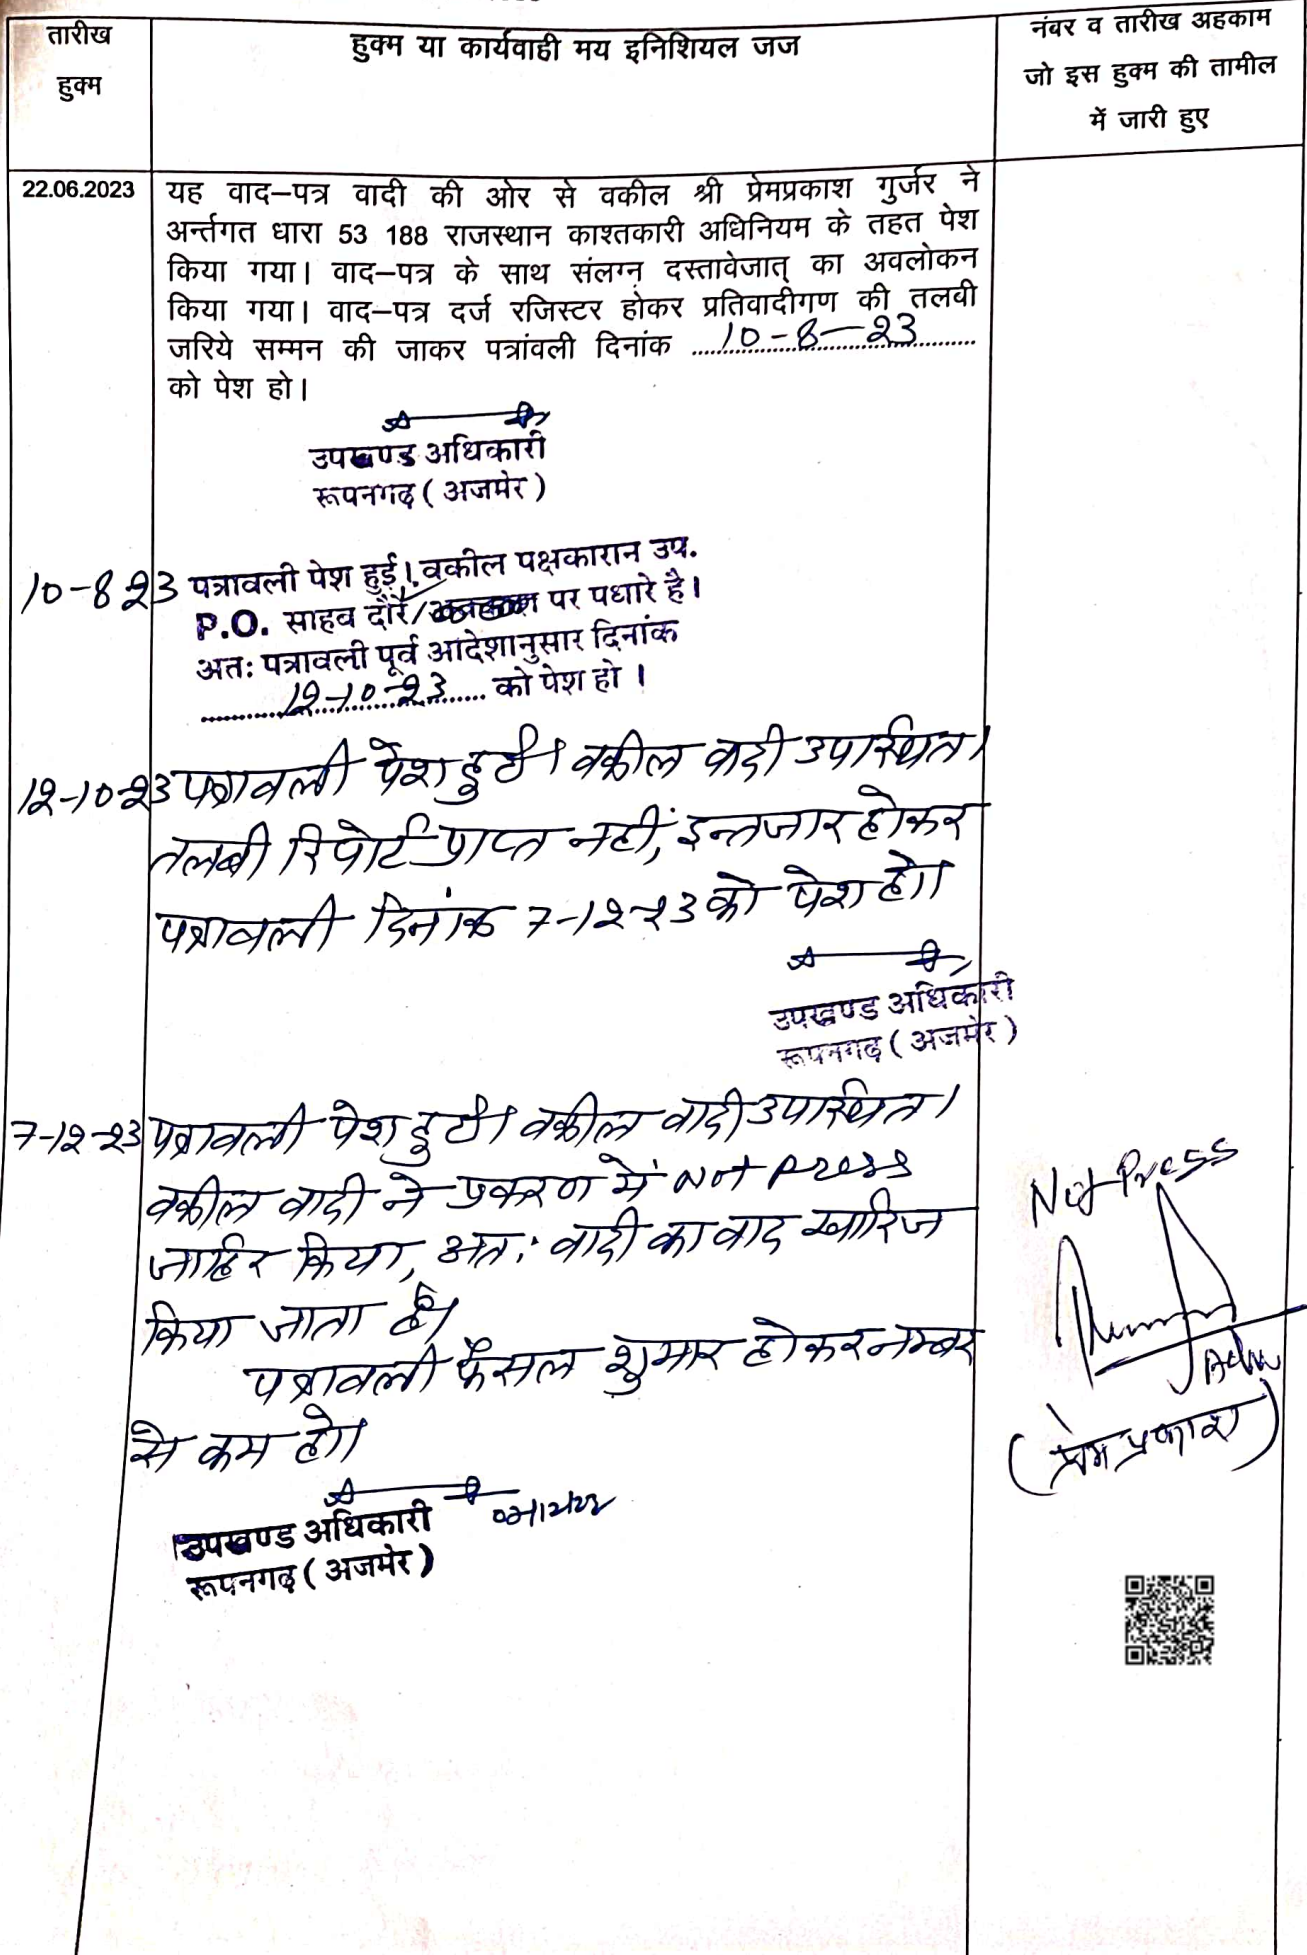 तारीख
हुक्म
हुक्म या कार्यवाही मय इनिशियल जज
नंबर व तारीख अहकाम
जो इस हुक्म की तामील
में जारी हुए
22.06.2023
यह वाद–पत्र वादी की ओर से वकील श्री प्रेमप्रकाश गुर्जर ने
अर्न्तगत धारा 53 188 राजस्थान काश्तकारी अधिनियम के तहत पेश
किया गया। वाद–पत्र के साथ संलग्न दस्तावेजात् का अवलोकन
किया गया। वाद–पत्र दर्ज रजिस्टर होकर प्रतिवादीगण की तलबी
जरिये सम्मन की जाकर पत्रांवली दिनांक 10-8-23
को पेश हो।
उपखण्ड अधिकारी
रूपनगढ़ ( अजमेर )
10-8 23 पत्रावली पेश हुई। वकील पक्षकारान उप.
P.O. साहब दौरे/ पर पधारे है।
अतः पत्रावली पूर्व आदेशानुसार दिनांक
12-10-23 को पेश हो ।
12-10-23 पत्रावली पेश हुई। वकील वादी उपस्थित।
तलबी रिपोर्ट प्राप्त नहीं, इन्तजार होकर
पत्रावली दिनांक 7-12-23 को पेश हो।
उपखण्ड अधिकारी
रूपनगढ़ ( अजमेर )
7-12-23 पत्रावली पेश हुई। वकील वादी उपस्थित।
वकील वादी ने प्रकरण में Not Press
जाहिर किया, अतः वादी का वाद खारिज
किया जाता है।
पत्रावली फैसल शुमार होकर नम्बर
से कम हो।
उपखण्ड अधिकारी
रूपनगढ़ ( अजमेर )
Not Press
(प्रेम प्रकाश)